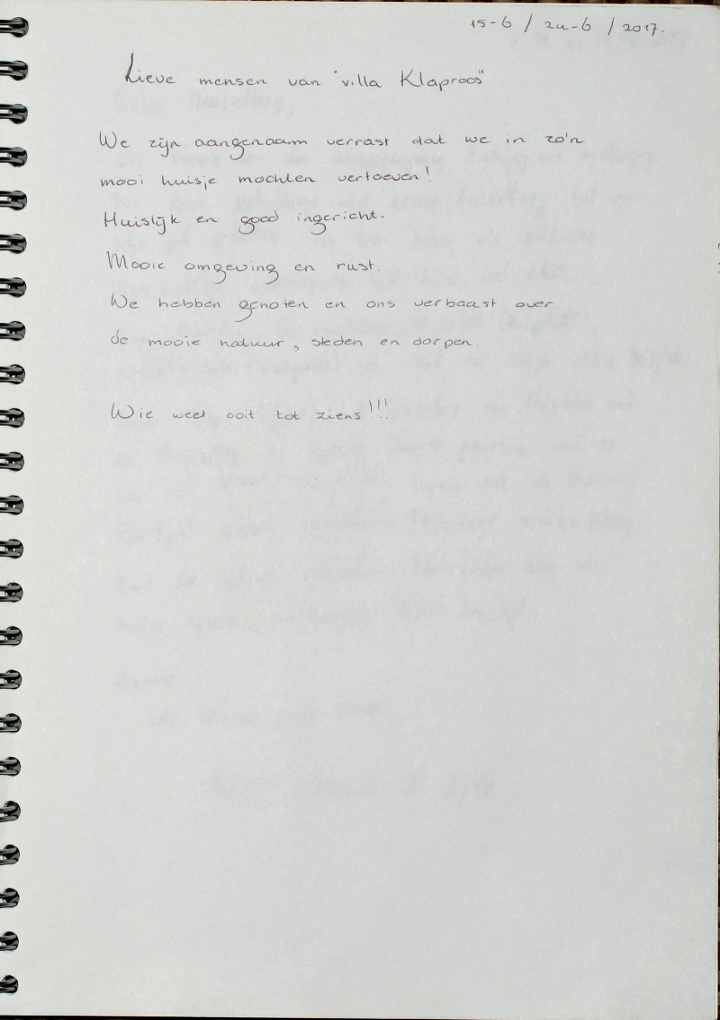 15-6 / 24-6 / 2017.
Lieve mensen van "villa Klaproos"
We zijn aangenaam verrast dat we in zo'n
mooi huisje mochten vertoeven!
Huislijk en goed ingericht.
Mooie omgeving en rust.
We hebben genoten en ons verbaast over
de mooie natuur, steden en dorpen.
Wie weet ooit tot ziens!!!